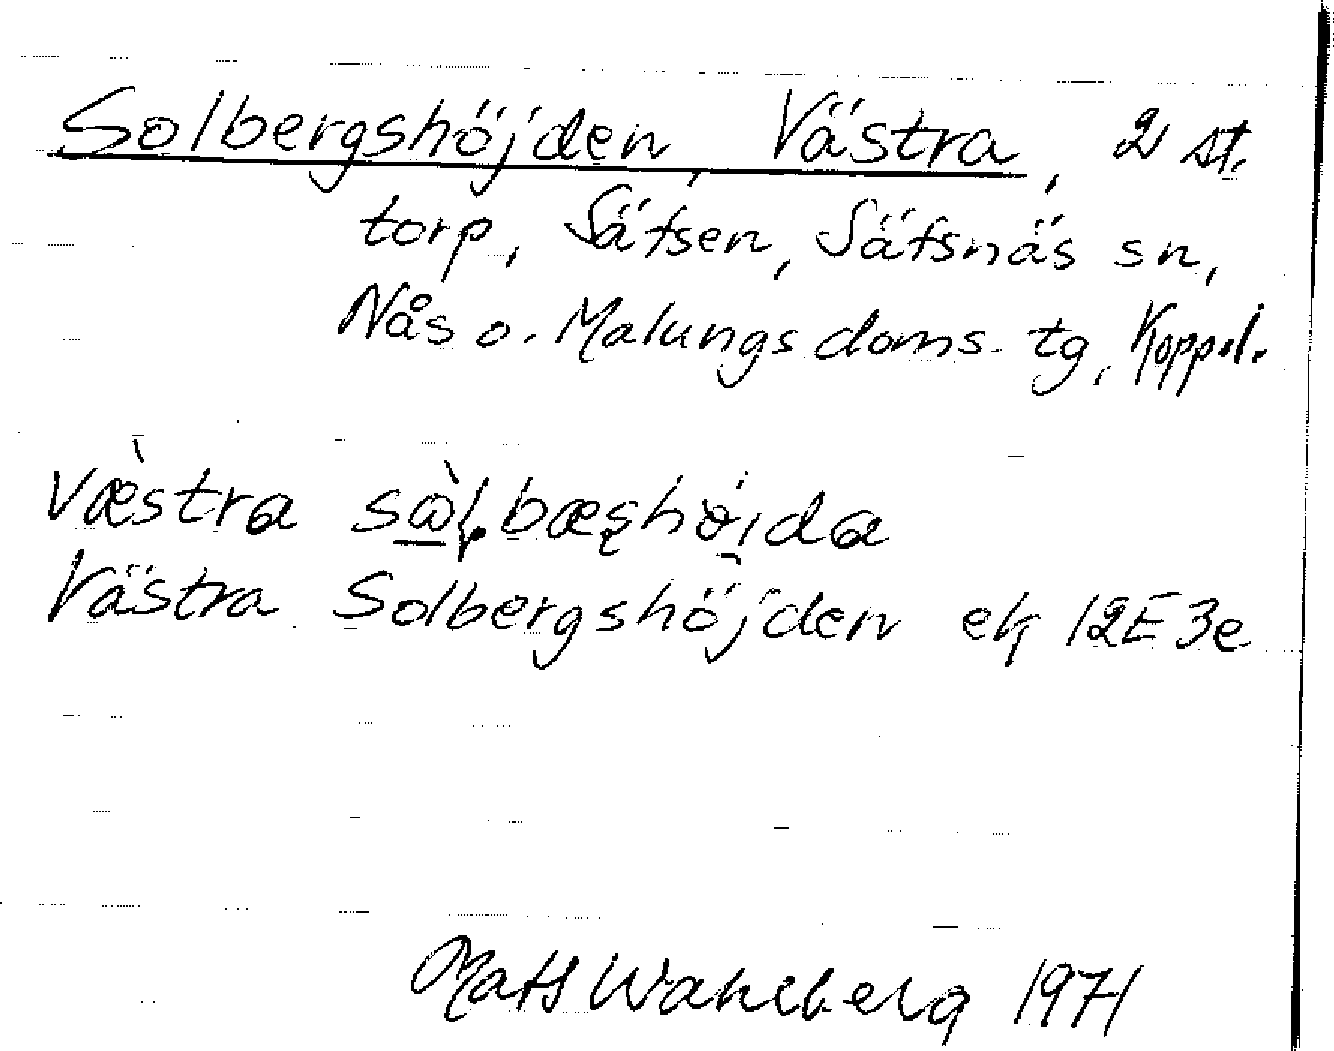 Solbergshöjden, Västra, 2 st.
torp, Sätsen, Säfsnäs sn,
Nås o. Malungs doms. tg, Koppel.
væ̀stra sὼḷbæʂhö̀i̯da
Västra Solbergshöjden ek 12E3e
Mats Wahlberg 1971